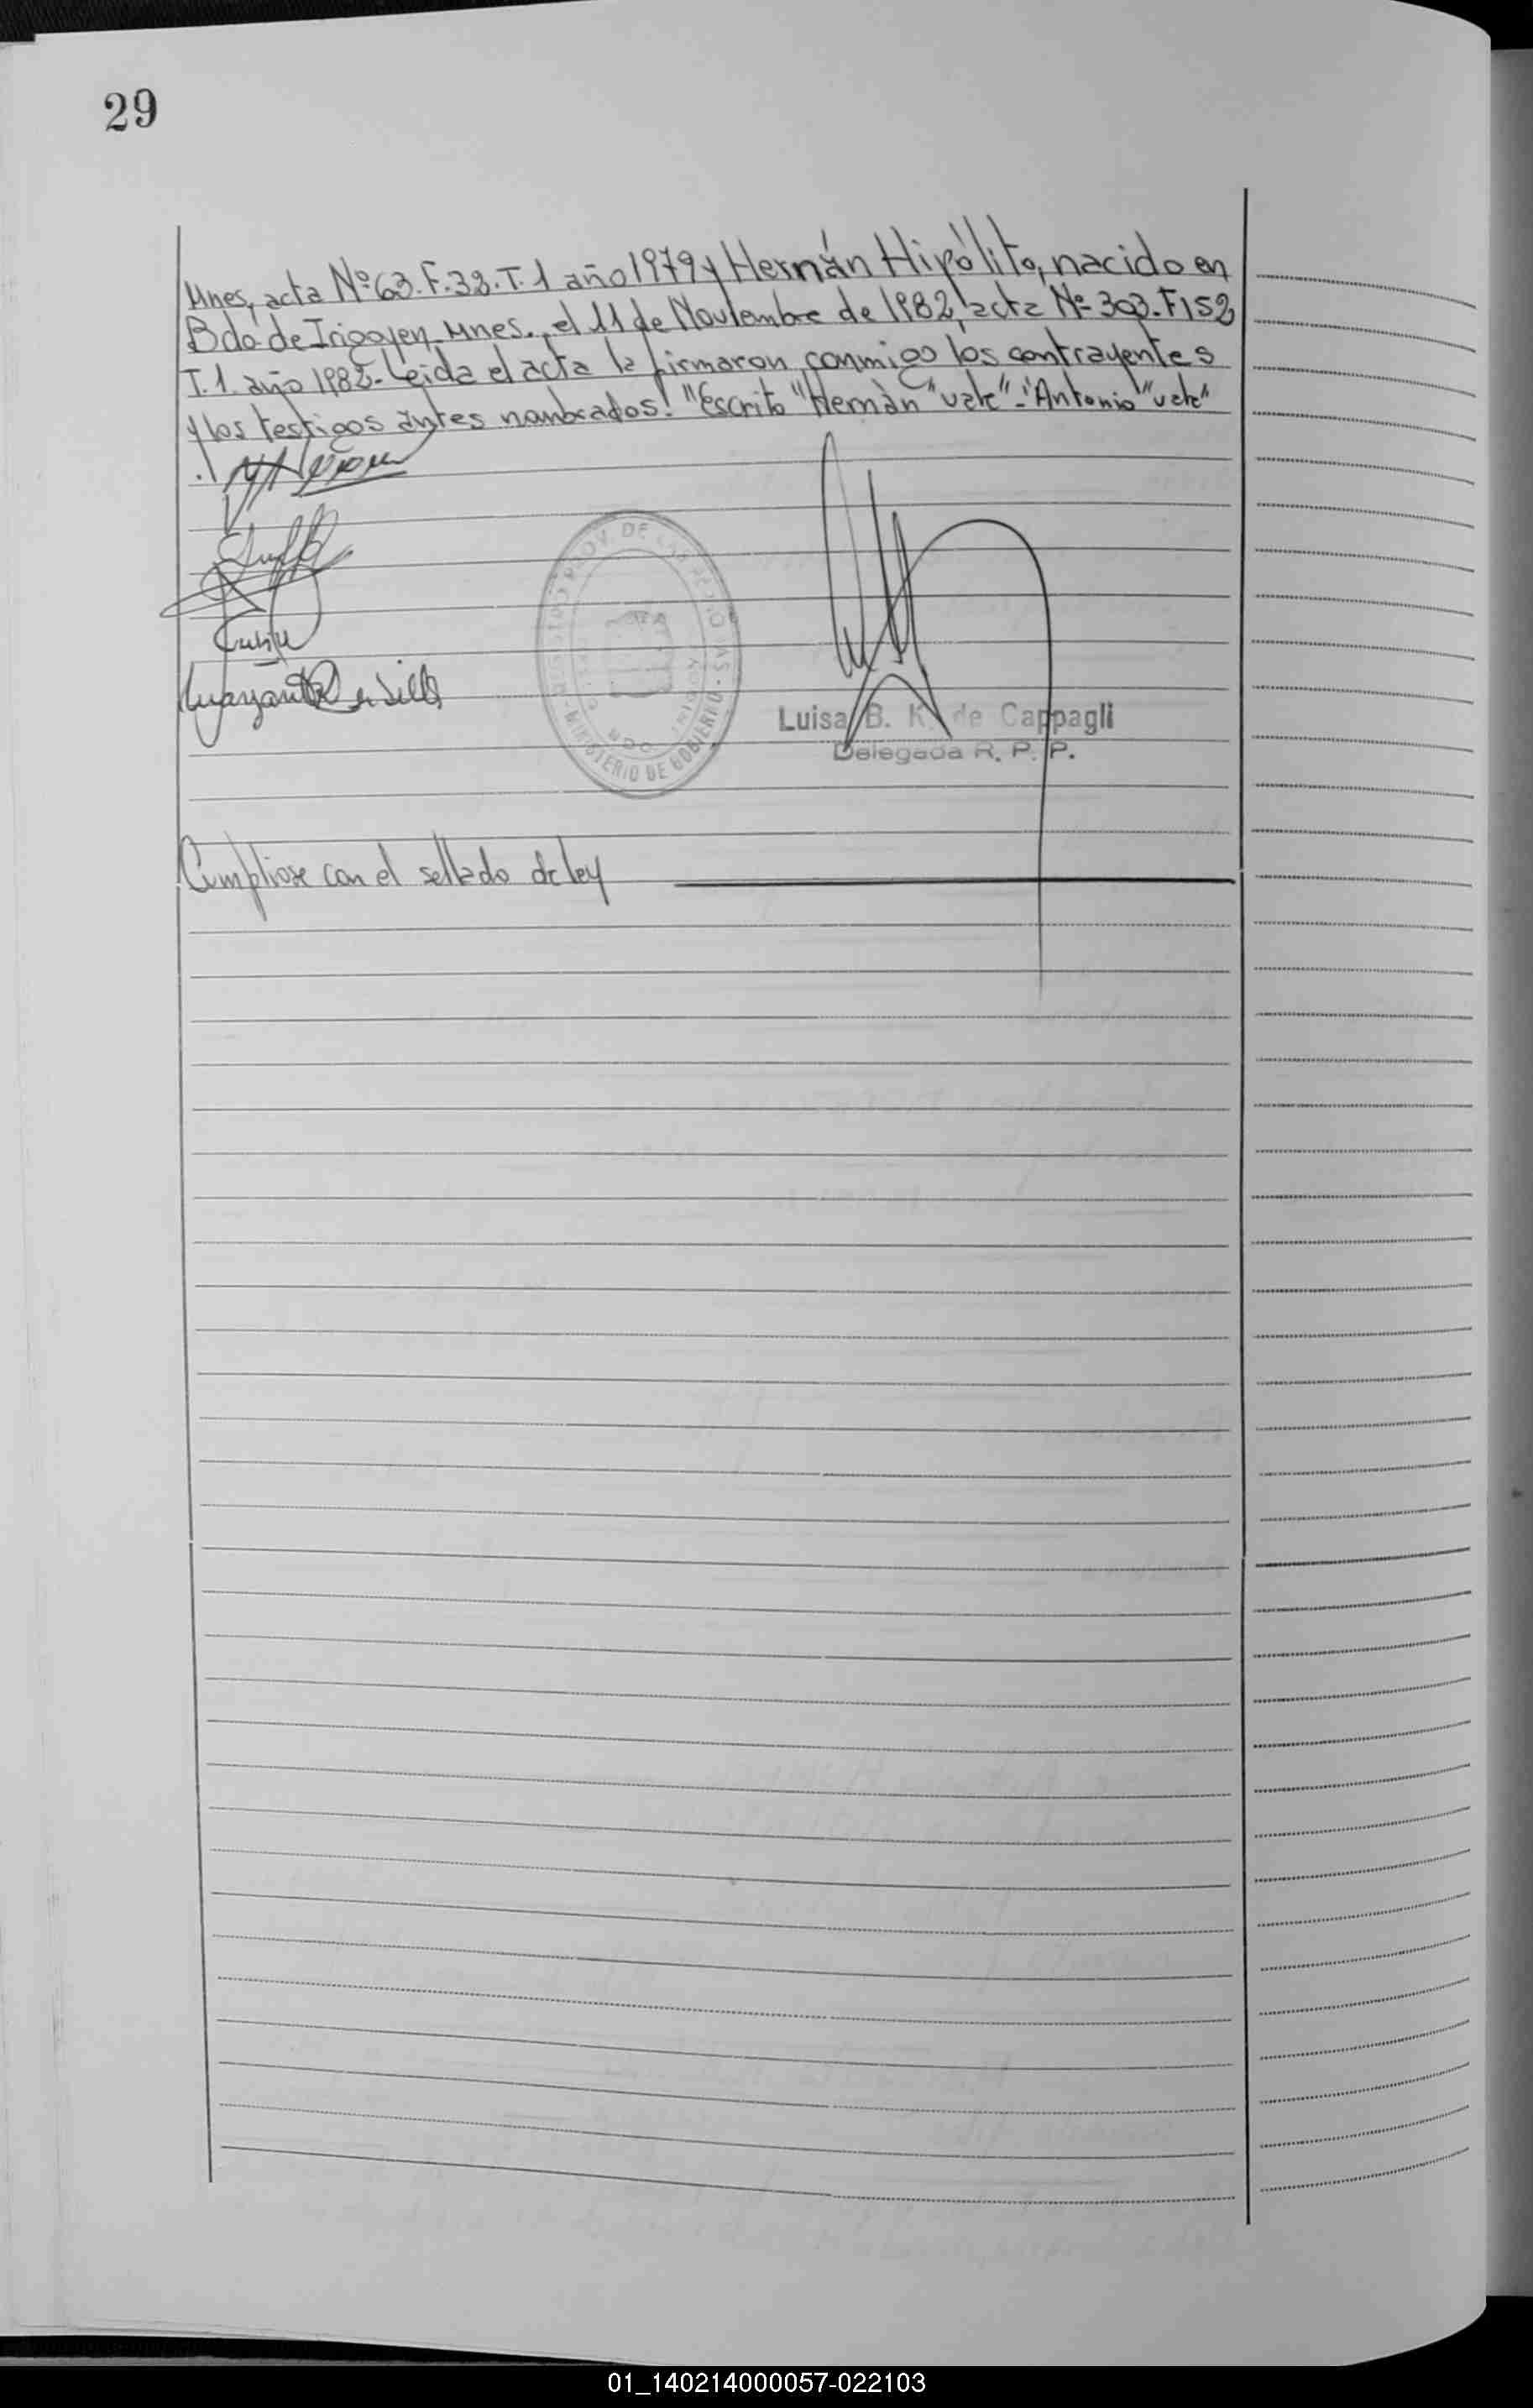 29
Mnes, acta Nº 63. F. 32. T. 1 año 1979 y Hernán Hipólito, nacido en
Bdo de Irigoyen Mnes., el 11 de Noviembre de 1982, acta Nº 303. F 152
T. 1. año 1982. Leida el acta la firmaron conmigo los contrayentes
y los testigos antes nombrados. "Escrito "Hernàn "vale" - "Antonio "vale"
MINISTERIO DE GOBIERNO
Luisa B. K. de Cappagli
Delegada R. P. P.
Cumpliose con el sellado de ley
01_140214000057-022103